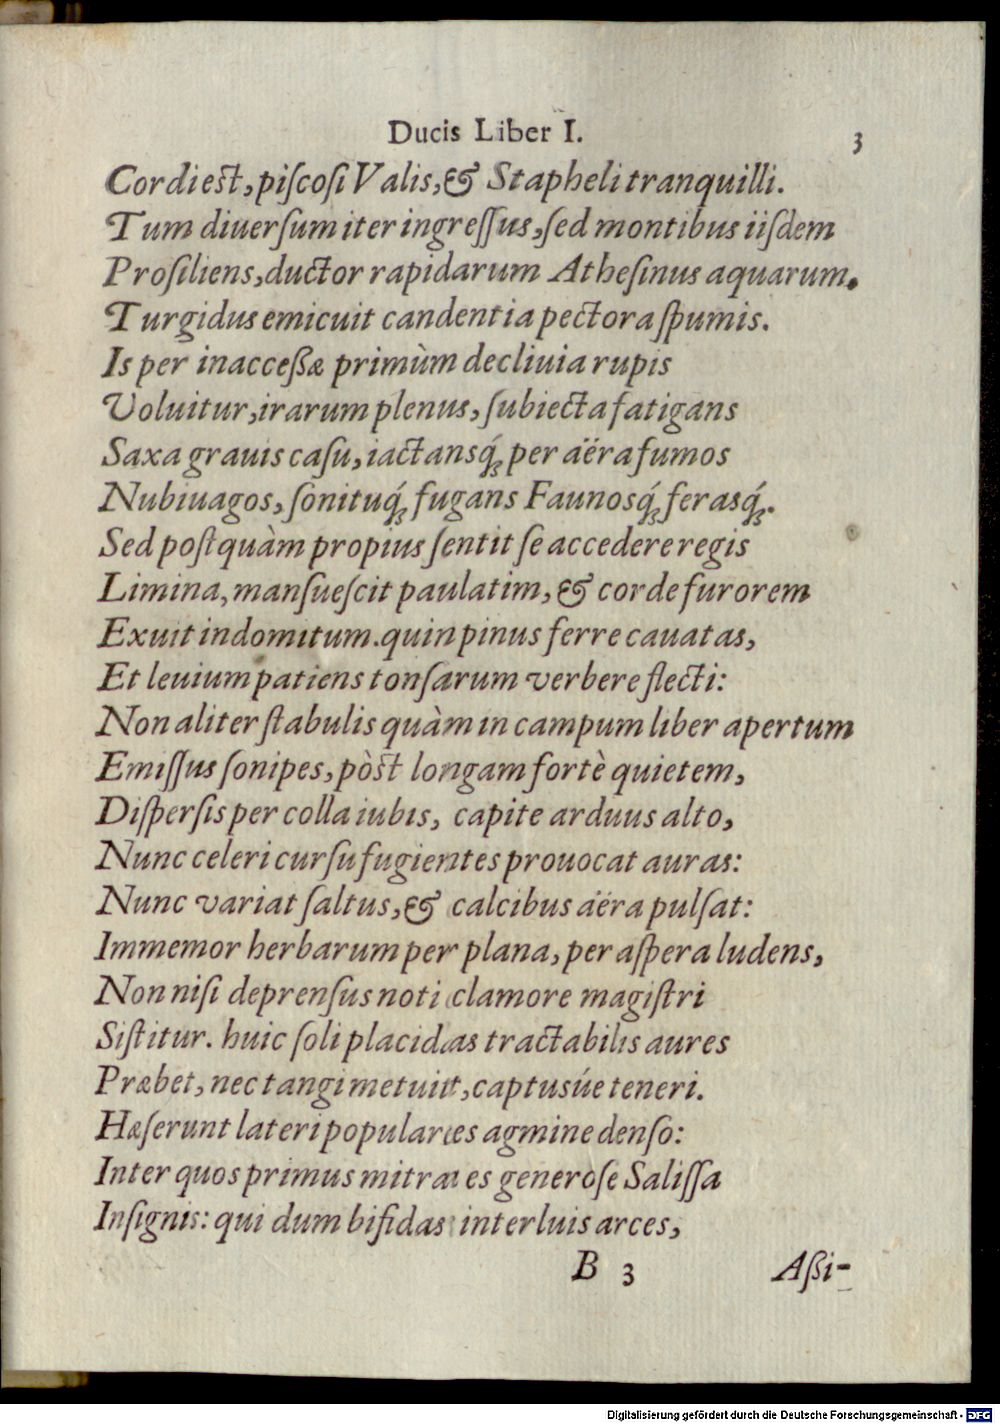 Ducis Liber I. 3
Cordi eſt, piſcoſi Valis, & Stapheli tranquilli.
Tum diuerſum iter ingreſſus, ſed montibus iiſdem
Proſiliens, ductor rapidarum Atheſinus aquarum.
Turgidus emicuit candentia pectora ſpumis.
Is per inacceßæ primùm decliuia rupis
Voluitur, irarum plenus, ſubiecta fatigans
Saxa grauis caſu, iactansq́ꝫ per aëra fumos
Nubiuagos, ſonituq́ꝫ fugans Faunosq́ꝫ ferasq́ꝫ.
Sed poſtquàm propius ſentit ſe accedere regis
Limina, manſueſcit paulatim, & corde furorem
Exuit indomitum. quin pinus ferre cauatas,
Et leuium patiens tonſarum verbere flecti:
Non aliter ſtabulis quàm in campum liber apertum
Emiſſus ſonipes, pòſt longam fortè quietem,
Diſperſis per colla iubis, capite arduus alto,
Nunc celeri curſu fugientes prouocat auras:
Nunc variat ſaltus, & calcibus aëra pulſat:
Immemor herbarum per plana, per aſpera ludens,
Non niſi deprenſus noti clamore magiſtri
Siſtitur. huic ſoli placidas tractabilis aures
Præbet, nec tangi metuit, captusúe teneri.
Hæſerunt lateri populares agmine denſo:
Inter quos primus mitra es generoſe Saliſſa
Inſignis: qui dum bifidas interluis arces,
B 3 Aßi-
Digitalisierung gefördert durch die Deutsche Forschungsgemeinschaft - DFG